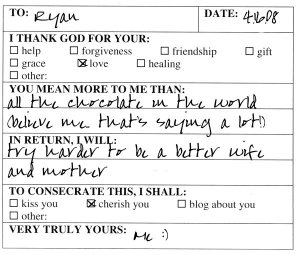 TO: Ryan DATE: 4/16/08
I THANK GOD FOR YOUR:
☐ help ☐ forgiveness ☐ friendship ☐ gift
☐ grace ☒ love ☐ healing
☐ other:
YOU MEAN MORE TO ME THAN:
all the chocolate in the world
(believe me that's saying a lot!)
IN RETURN, I WILL:
try harder to be a better wife
and mother
TO CONSECRATE THIS, I SHALL:
☐ kiss you ☒ cherish you ☐ blog about you
☐ other:
VERY TRULY YOURS: me :)